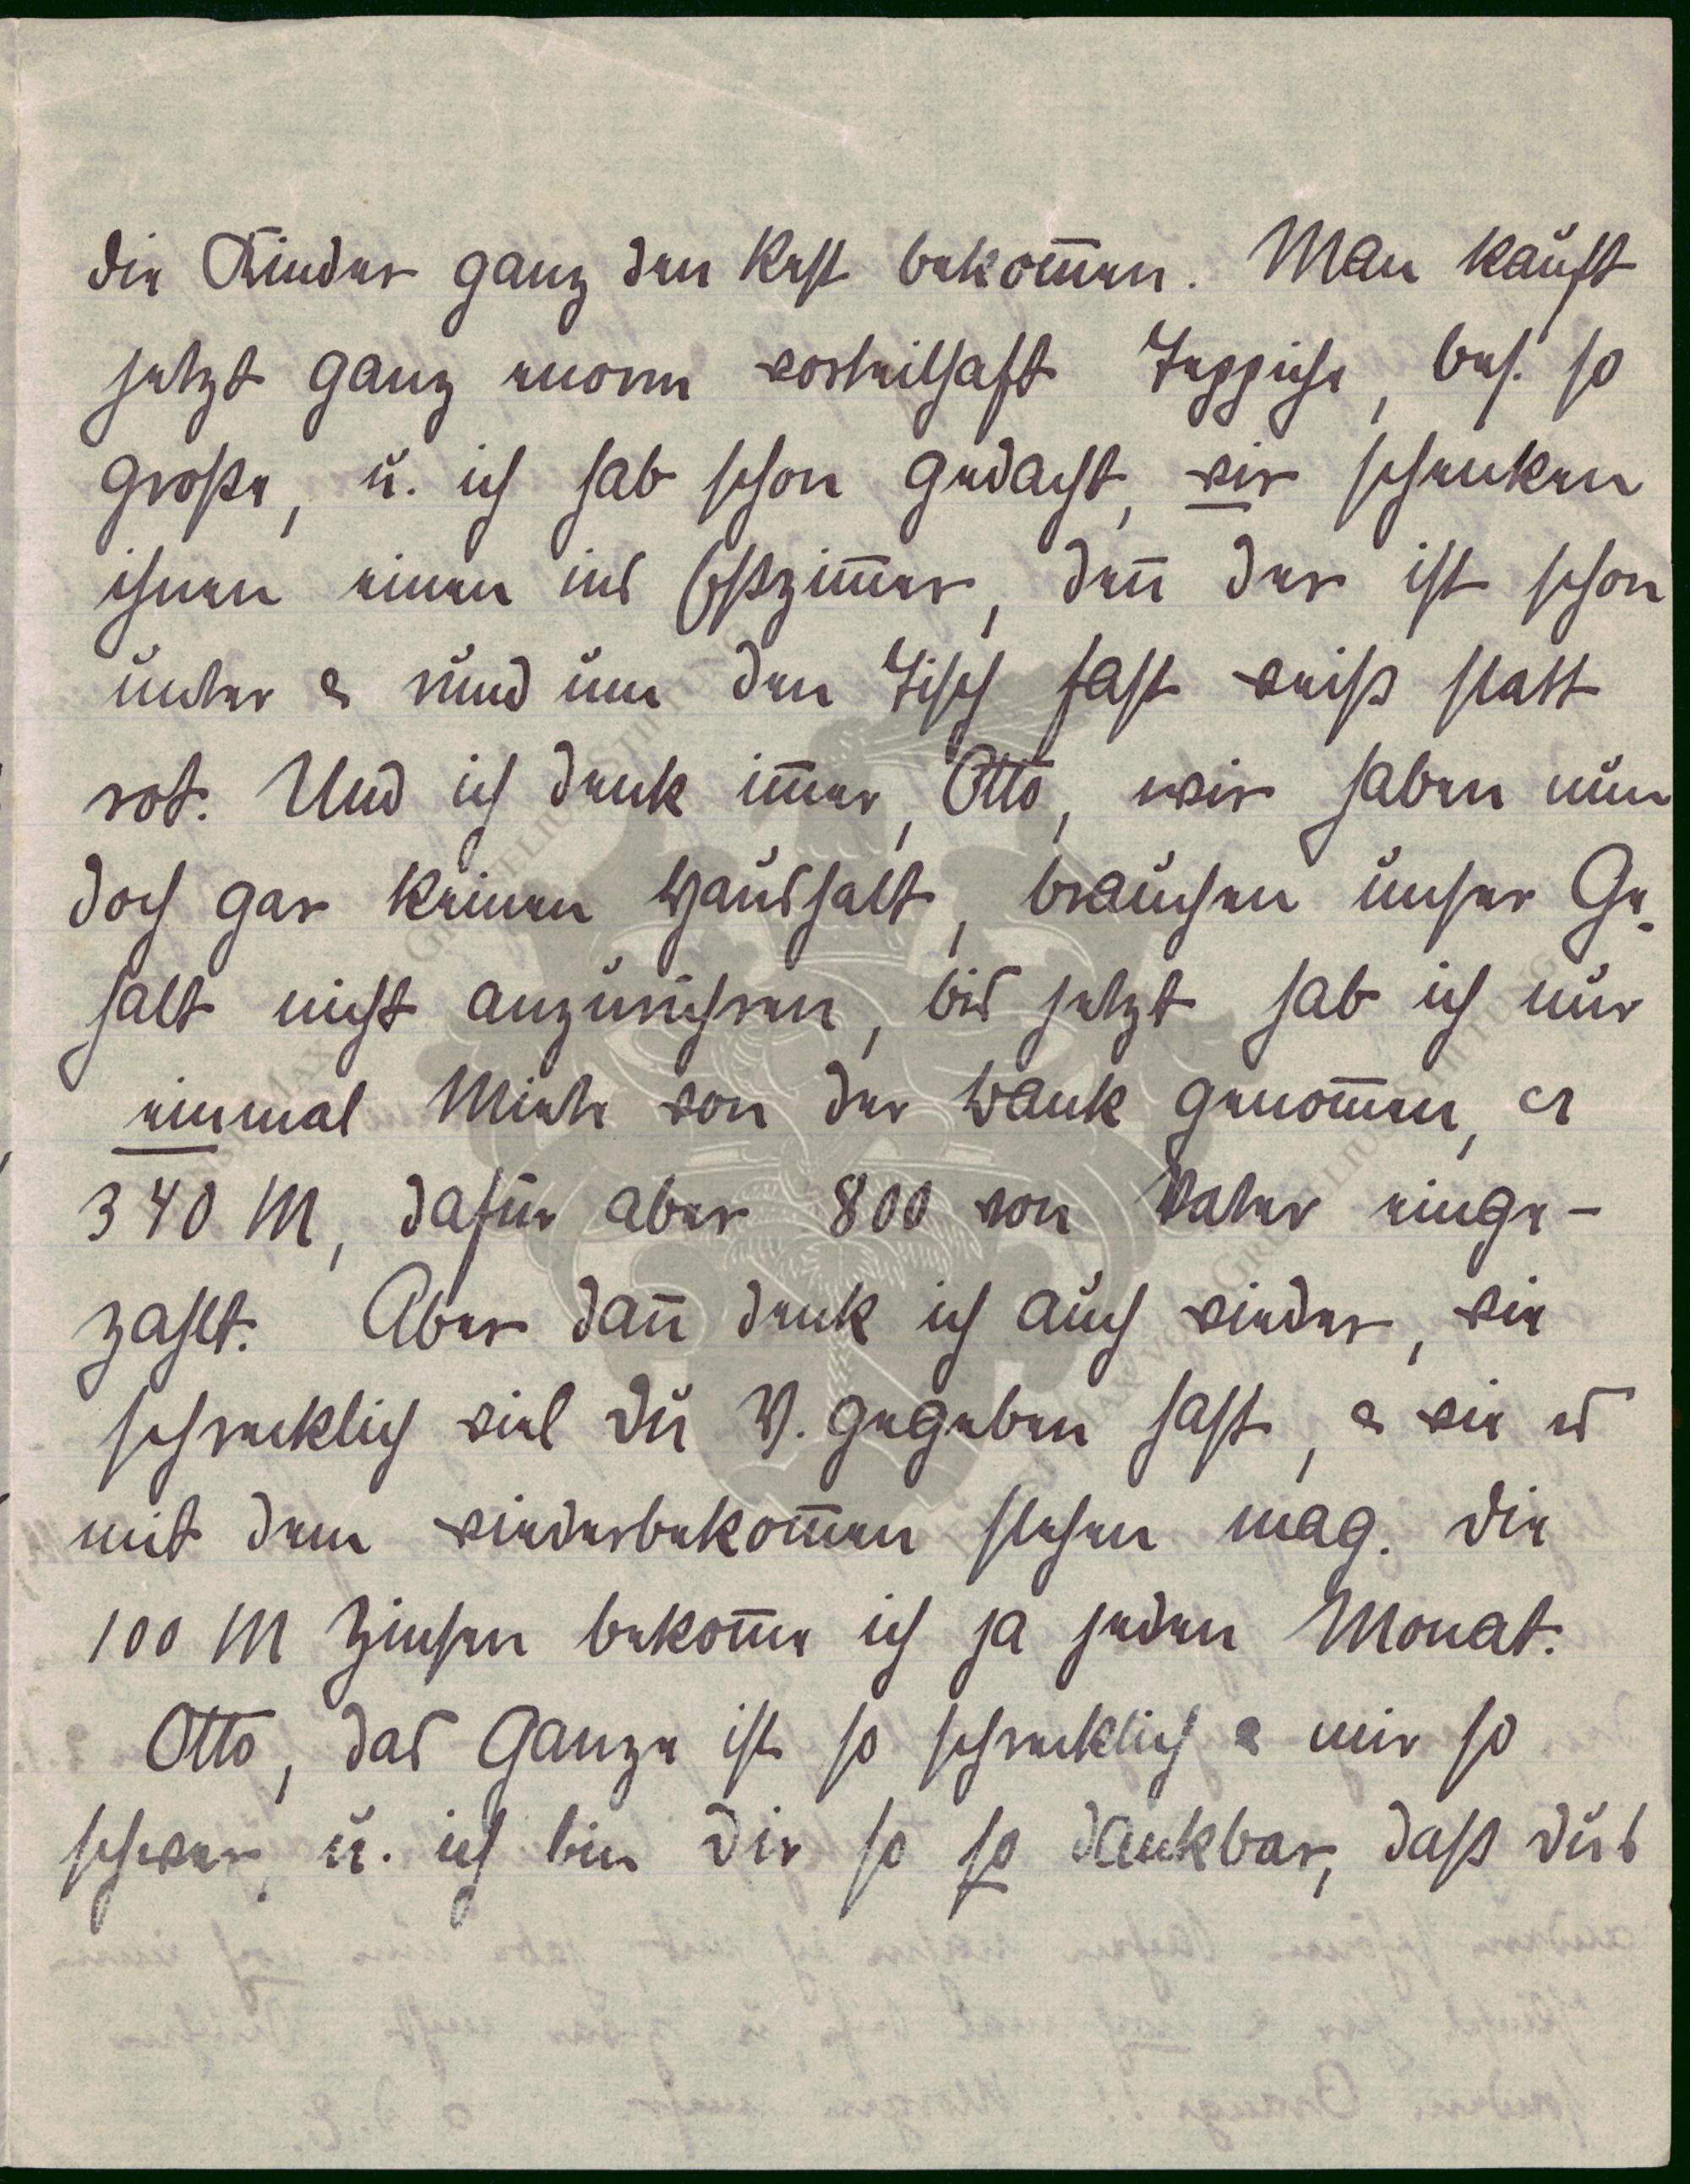 die Kinder ganz den Rest bekom̅en. Man kauft
jetzt ganz enorm vorteilhaft Teppiche, bes. so
große, u. ich hab schon gedacht, wir schenken
ihnen einen ins Eßzim̅er, den̅ der ist schon
unter & rund um den Tisch fast weiß statt
rot. Und ich denk im̅er, Otto, wir haben nun
doch gar keinen Haushalt, brauchen unser Ge-
halt nicht anzurühren, bis jetzt hab ich nur
einmal Miete von der Bank genom̅en, ca
340 M, dafür aber 800 von Vater einge-
zahlt. Aber dan̅ denk ich auch wieder, wie
schrecklich viel Du V. gegeben hast, & wie es
mit dem wiederbekom̅en stehen mag. Die
100 M Zinsen bekom̅e ich ja jeden Monat.
Otto, das Ganze ist so schrecklich & mir so
schwer, u. ich bin Dir so so dankbar, daß Du's